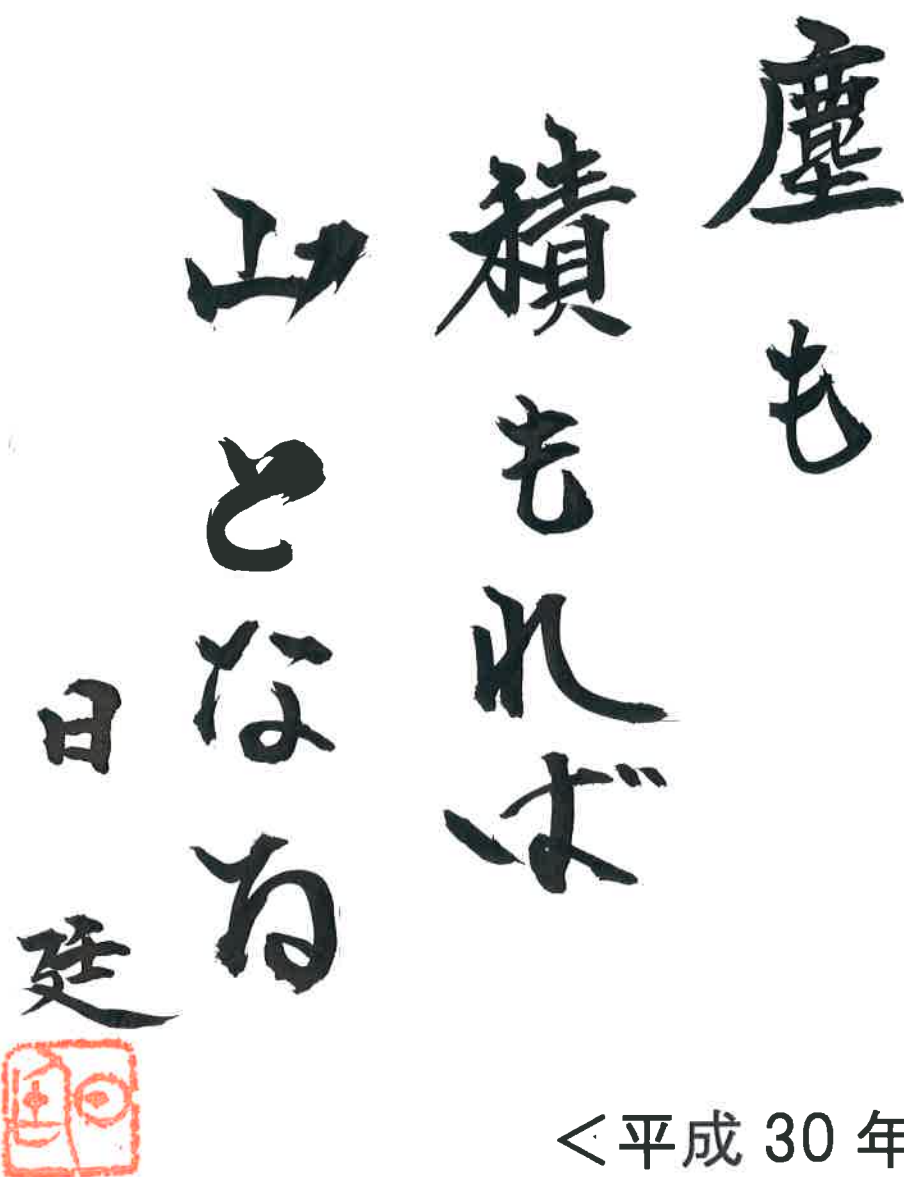 塵も
積もれば
山となる
日廷
<平成 30 年